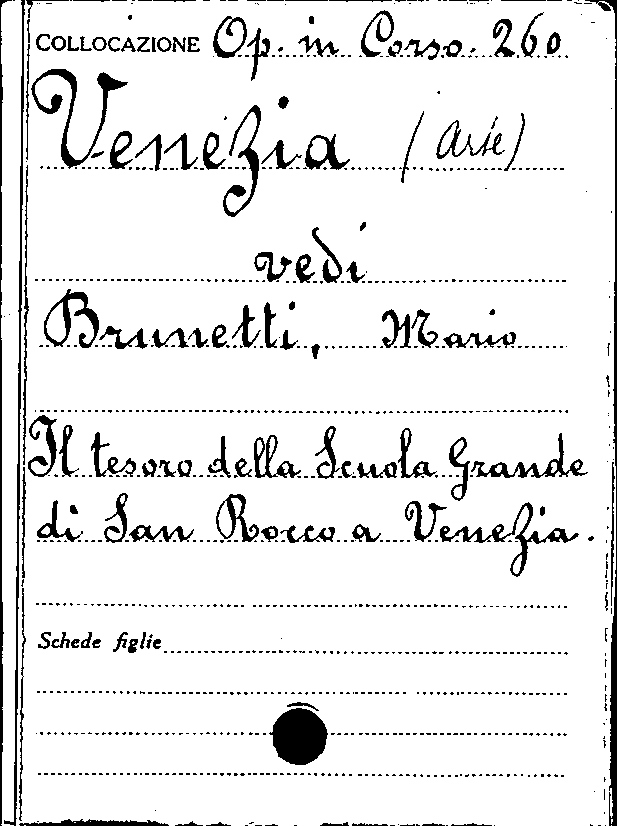 COLLOCAZIONE Op. in Corso. 260
Venezia (Arte)
vedi
Brunetti, Mario
Il tesoro della Scuola Grande
di San Rocco a Venezia.
Schede figlie